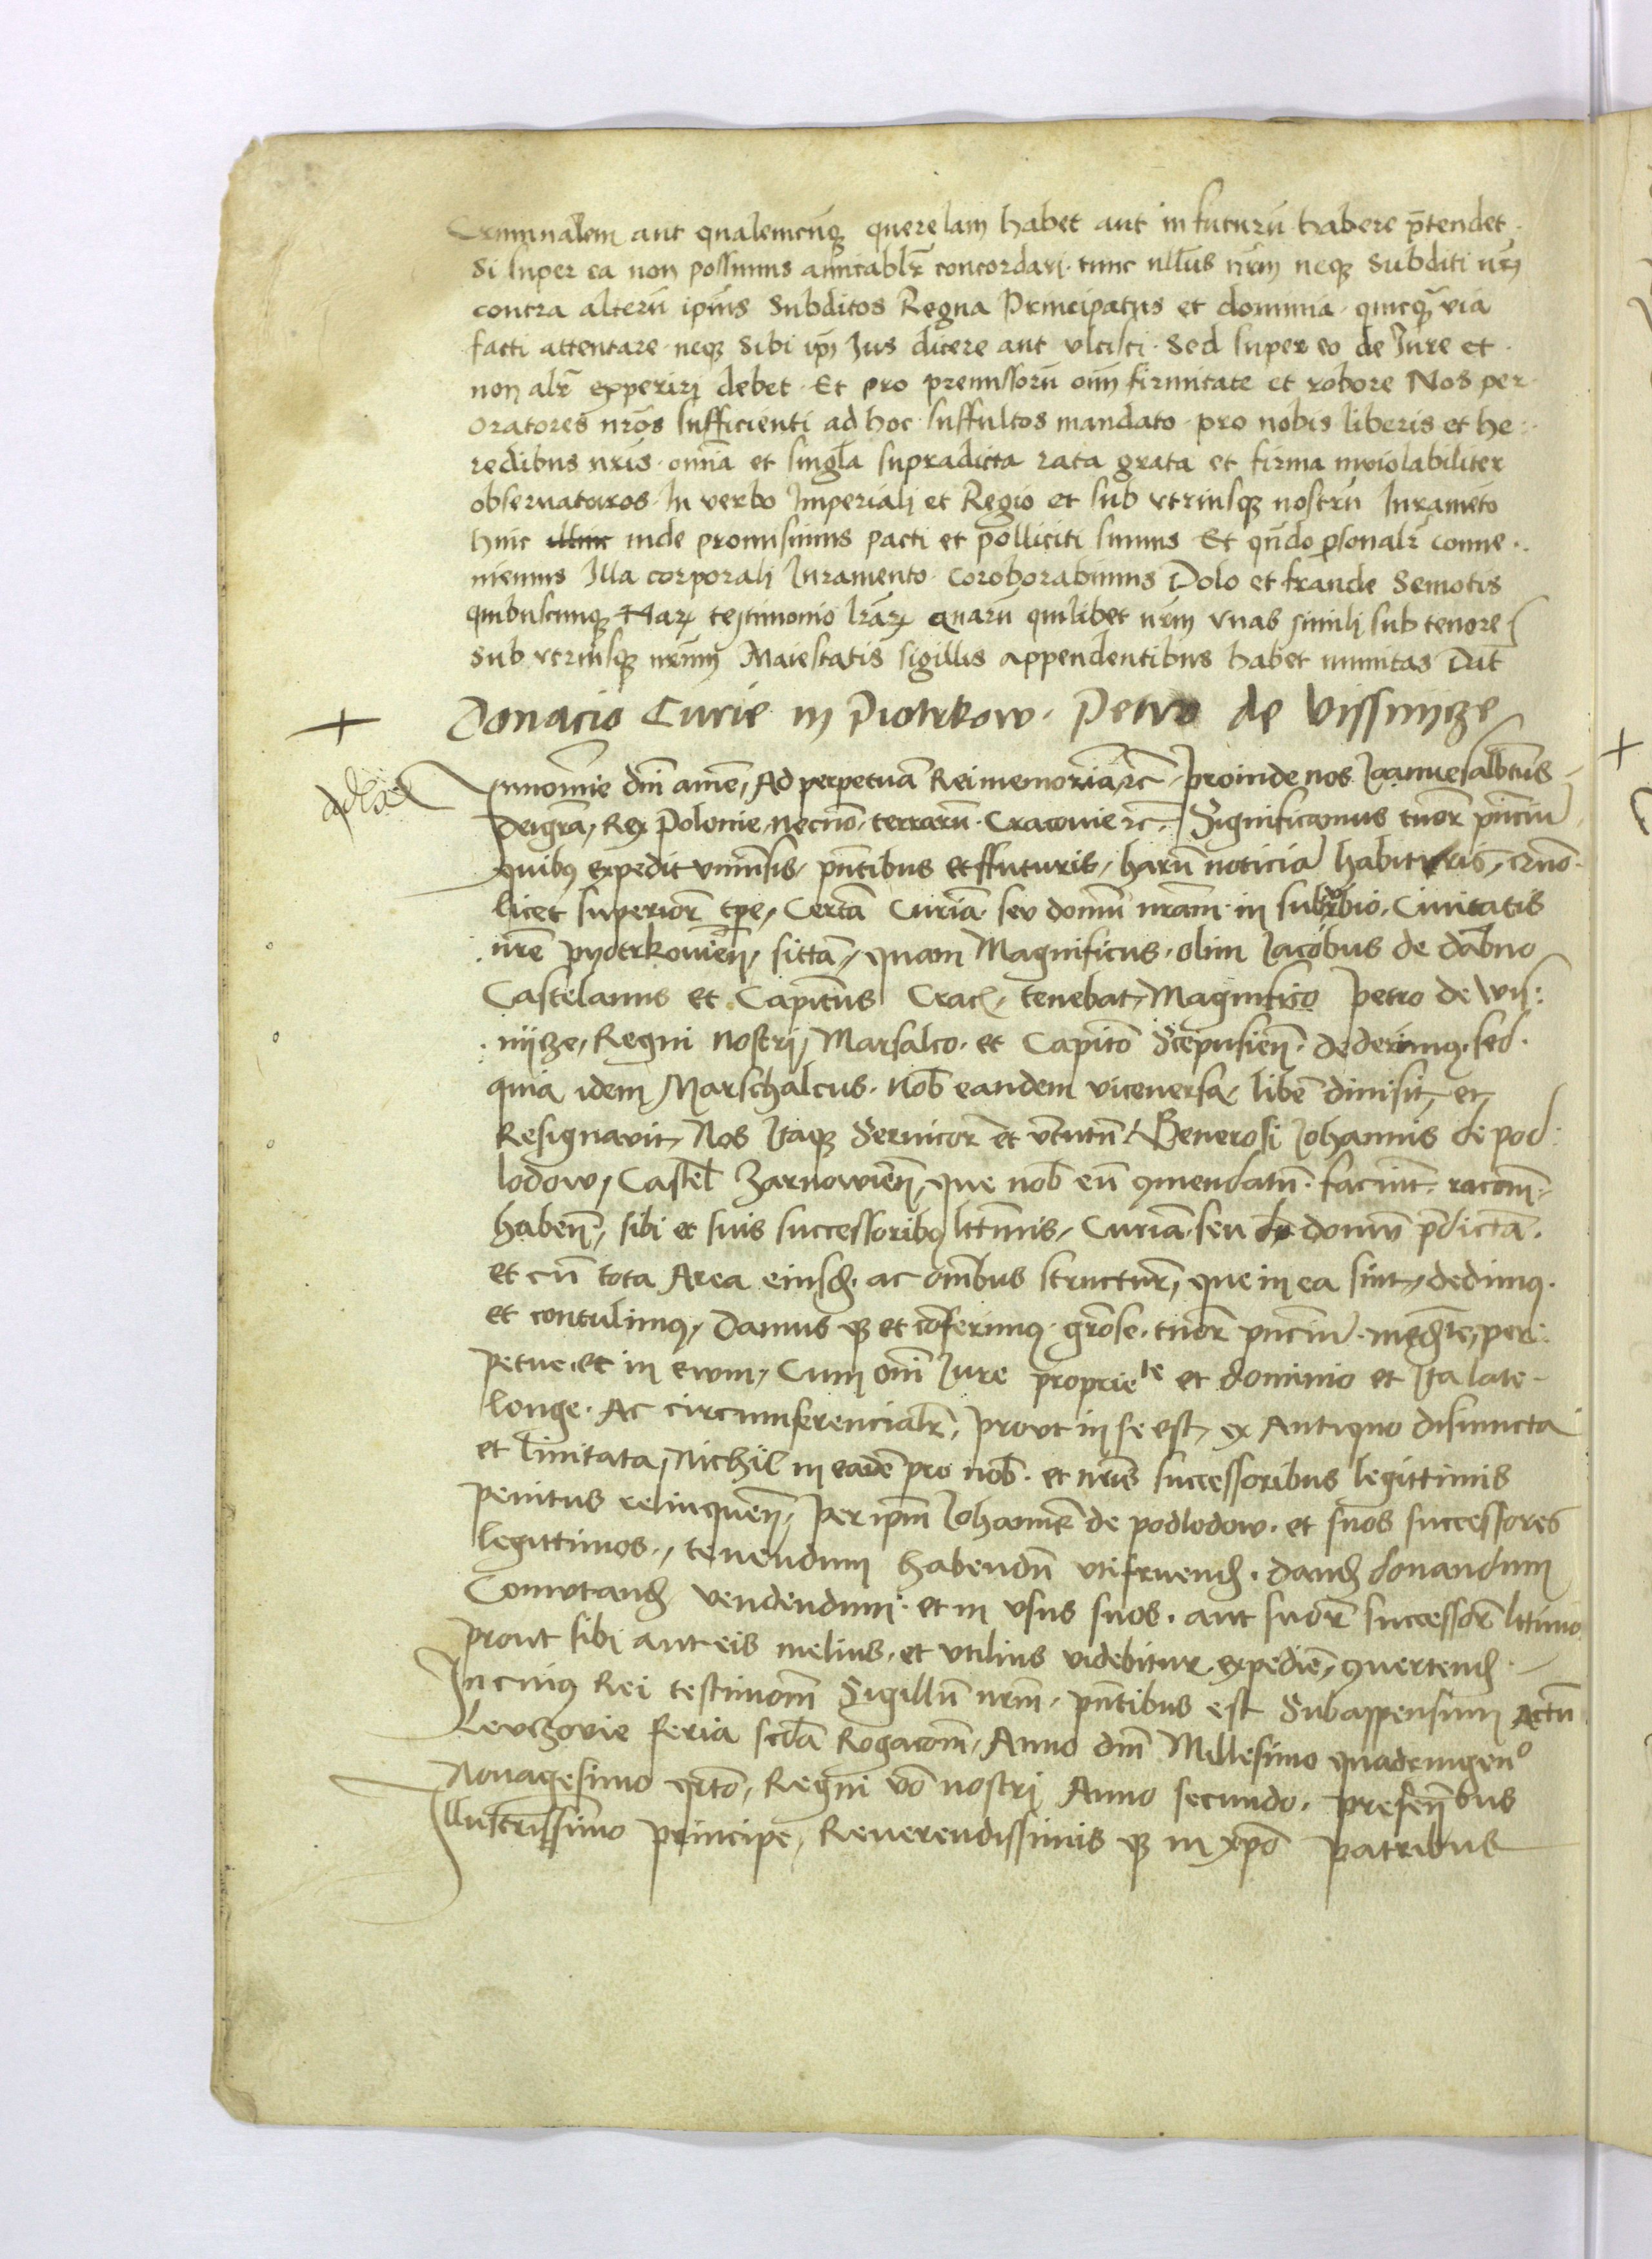 Criminalem aut qualemcūqꝫ querelam habet aut in futurū habere p̄tendet
Si super ea non possumus amicabilr̄ concordari · tunc nullus nr̄m neqꝫ Subditi nr̄i
contra alterū ipīus Subditos Regna Principatus et dominia · quicq̄ via
facti attentare · neqꝫ Sibi ipī Jus dicere aut vlcisci · Sed super eo de Jure et ·
non alr̄ experiri debet · Et pro premissorū oīm firmitate et robore Nos per
Oratores nr̄os sufficienti ad hoc suffultos mandato · pro nobis liberis et he :
redibus nr̄is · omīa et singla supradicta rata grata et firma inviolabiliter
obseruaturos · In verbo Imperiali et Regio et sub vtriusqꝫ nostrū Iuramēto
hinc illinc inde promisimus pacti et polliciti sumus Et qn̄do psonalr̄ conue ·
niemus Illa corporali Iuramento · coroborabimus Dolo et fraude Semotis
quibuscunqꝫ Harꝝ testimonio lr̄arꝝ quarū quilibet nr̄m vnas simili sub tenore
Sub vtriusqꝫ nr̄um Maiestatis sigillis appendentibus habet munitas Dat
Donacio Curie in Piotrkow · Petro de Vissnijcze
In nomīe dnī amē, Ad perpetuā Rei memoriā, rc̄ · Proinde nos Ioannes albtus
Dei gr̄a, Rex Polonie, necnō · terrarū · Cracouie rc̄ · Significamus tenor̄ pn̄ciū
quibꝰ expedit vniūsis, pn̄tibus et ffuturis, harū noticiā habituris,
licet superiorī tpe, Certā Curiā · seu domū nr̄am · in suburbio · Ciuitatis
nr̄e pyotrkouien̄, sittā, quam Magnificus · olim Iacobus de dabno
Castelanus et Capitn̄s Crac̄, tenebat, Magnifico Petro de Wis :
nijcze, Regni nostri, Marsalco · et Capito Scepusien̄ · dederimꝰ · sed ·
quia idem Marschalcus · nob̄ eandem viceuersa, libē dimisit, et
Resignavit, Nos Itaqꝫ Seruicior̄ et v̄tutū Generosi Iohannis de pod :
lodow, Castel̄ Zarnowien̄, que nob̄ eū ꝯmendatū · faciunt · racōm
haben̄, sibi et suis successoribꝰ lttimis, Curiā · seu do domū p̄dictā ·
et cū tota Area eiusd̄ · ac omībus structur̄, que in ea sunt, dedimꝰ ·
et contulimꝰ, Damus qꝫ et cōferimꝰ · grōse · tenor̄ pn̄ciū · per :
petue · et in ewm, Cum omī Iure propriete et dominio et Ita late ·
longe · Ac circumferencialr̄, prout in se est, ex Antiquo distincta
et limitata, Nichil in eadē pro nob̄ · et nr̄is successoribus legittimis
penitus relinquen̄, Per ipm̄ Iohannē de podlodow · et suos successores
legittimos, tenendum habendū vtifruend̄ · dand̄ donandum
Comutand̄ vendendum · et in vsus suos · aut suor̄ successor̄ lttimo
prout sibi aut eis melius · et vtilius videbitur · expediē, ꝯuertend̄ ·
In cuiꝰ Rei testimoniū Sigillū nr̄m · pn̄tibus est Subappensum Actū
Levczovie feria scdā Rogacōm, Anno dnī Millesimo quadringen°
Nonagesimo qrtō, Regni vō nostri Anno secundo · presen̄bus
Illustrissimo principe, Reuerendissimis qꝫ in xpō patribus